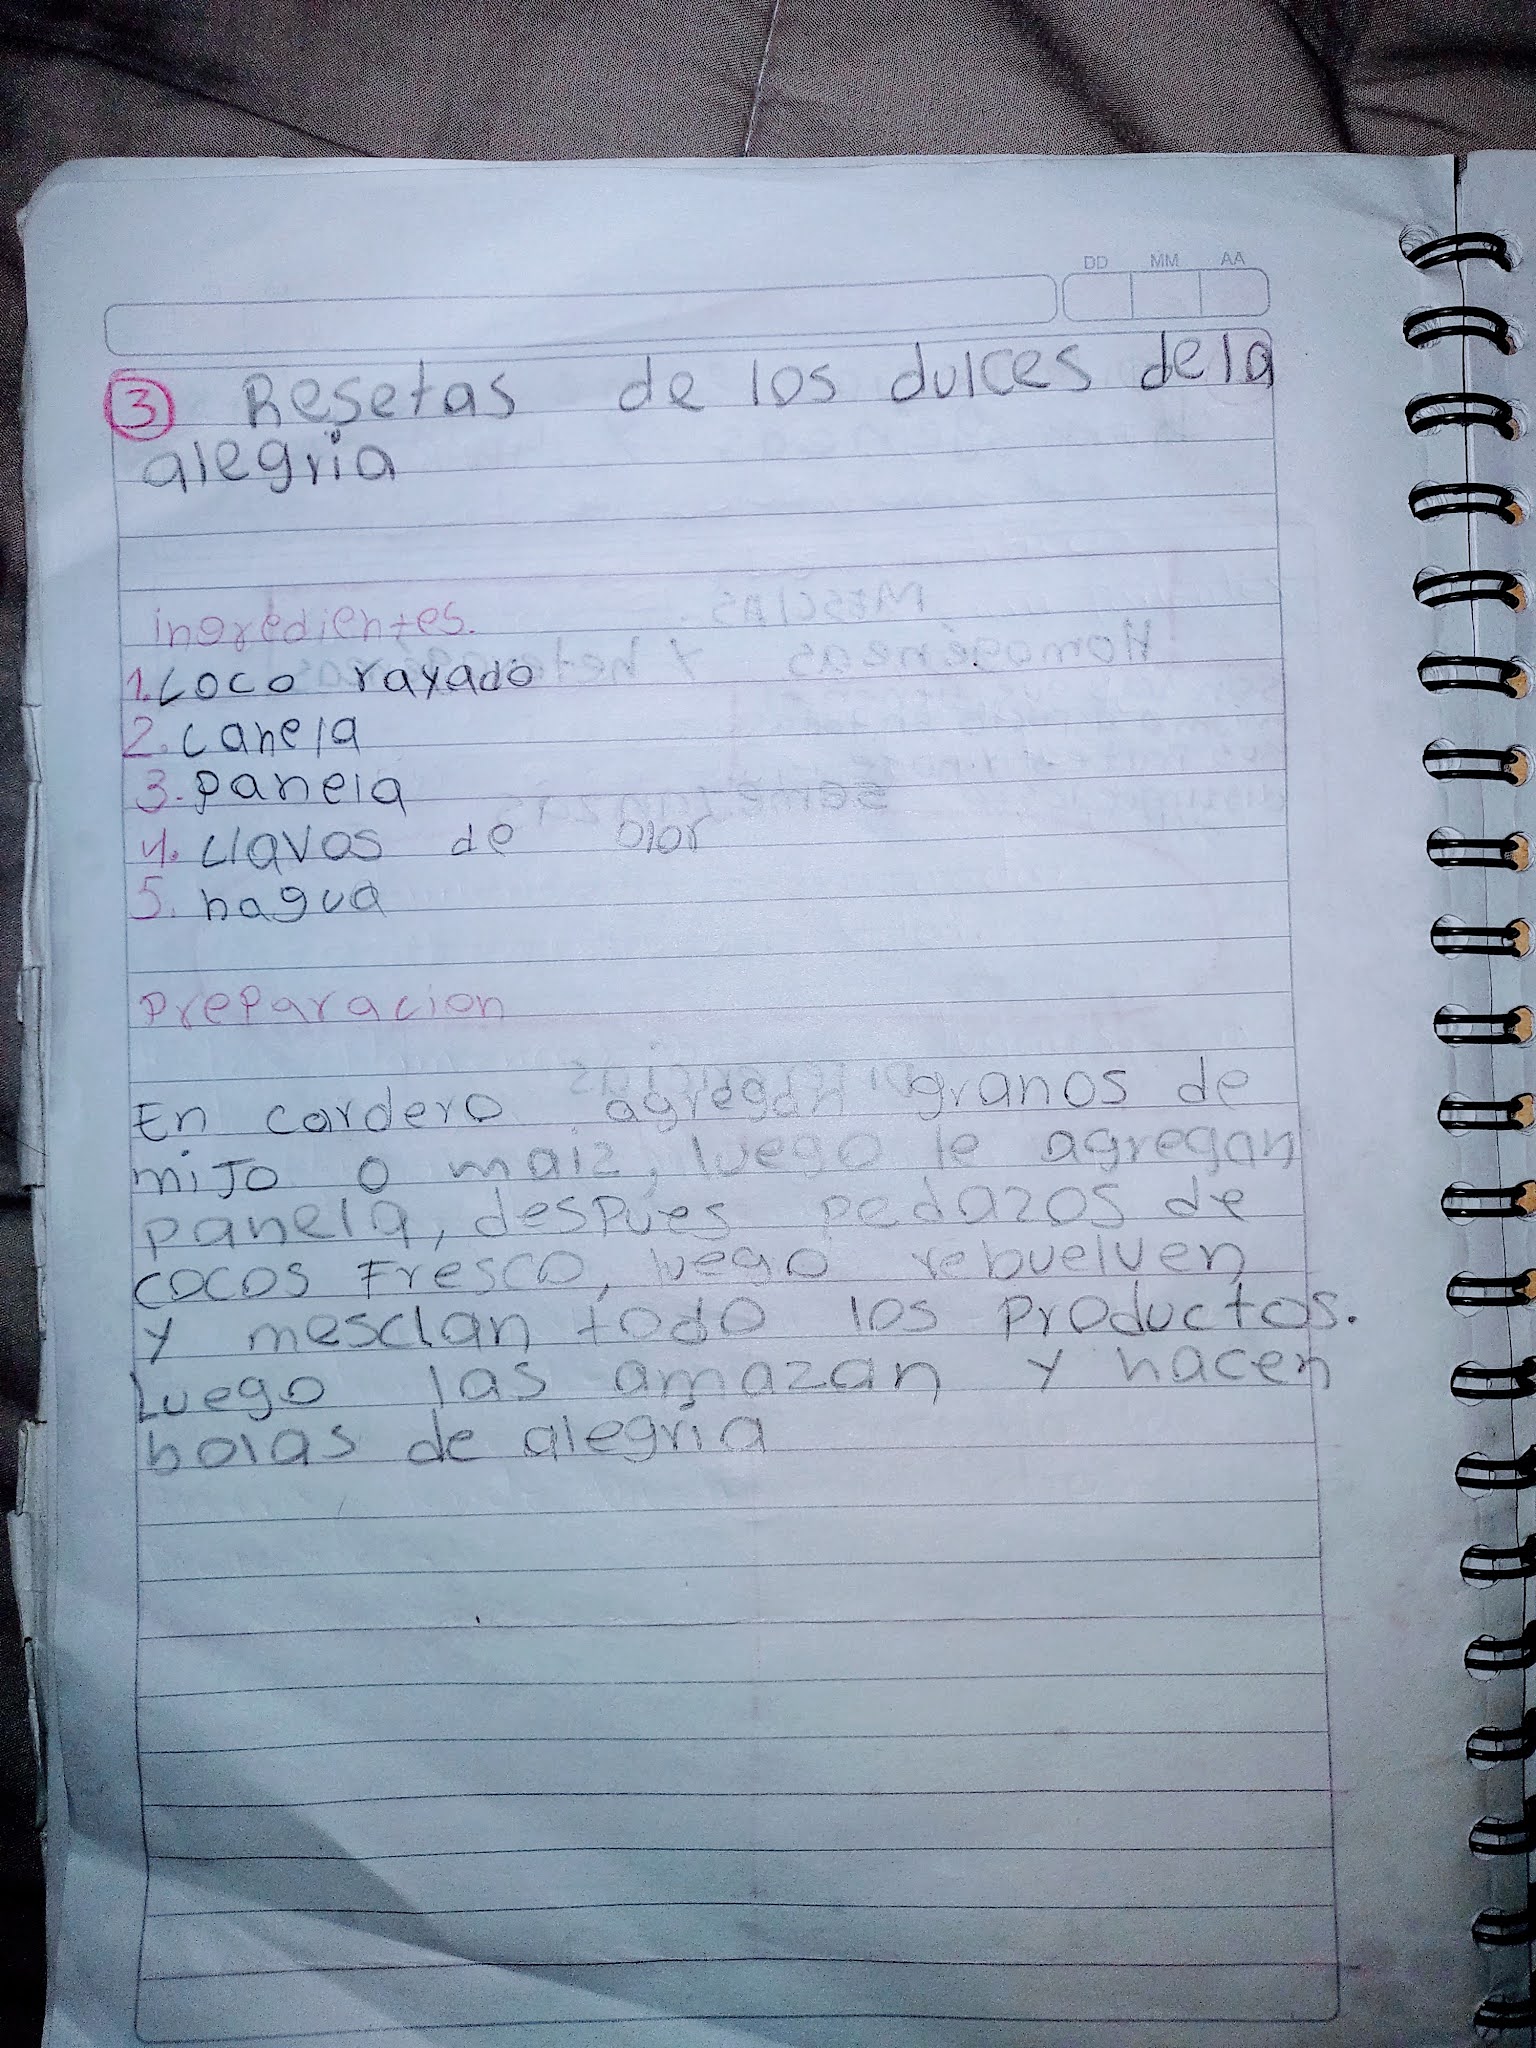 DD MM AA
3 Resetas de los dulces dela
alegria
ingredientes.
1. coco rayado
2. canela
3. panela
4. clavos de olor
5. hagua
preparacion
En cardero agregan granos de
mijo o maiz, luego le agregan
panela, despues pedazos de
cocos Fresco, luego rebuelven
y mesclan todo los productos.
Luego las amazan y hacen
bolas de alegria